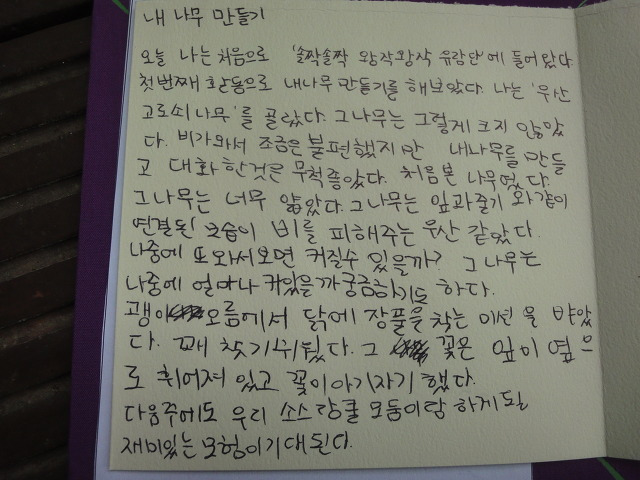 내 나무 만들기
오늘 나는 처음으로 '솔짝솔짝 왕작왕삭 유람단'에 들어 왔다
첫번째 활동으로 내나무 만들기를 해보았다. 나는 '우산
고로쇠나무'를 골랐다. 그나무는 그렇게 크지 않았
다. 비가와서 조금은 불편했지만 내나무를 만들
고 대화한것은 무척좋았다. 처음본 나무였다.
그나무는 너무 얇았다. 그나무는 잎과줄기 와같이
연결된 모습이 비를 피해주는 우산 같았다.
나중에 또와서보면 커질수 있을까? 그 나무는
나중에 얼마나 커있을까 궁금하기도 하다.
괭이오름에서 닭에 장풀을 찾는 미션을 받았
다. 꽤 찾기쉬웠다. 그 꽃은 잎이 옆으
로 휘어져 있고 꽃이아기자기 했다.
다음주에도 우리 소스랑쿨 모둠이랑 하게될
재미있는 모험이기대된다.